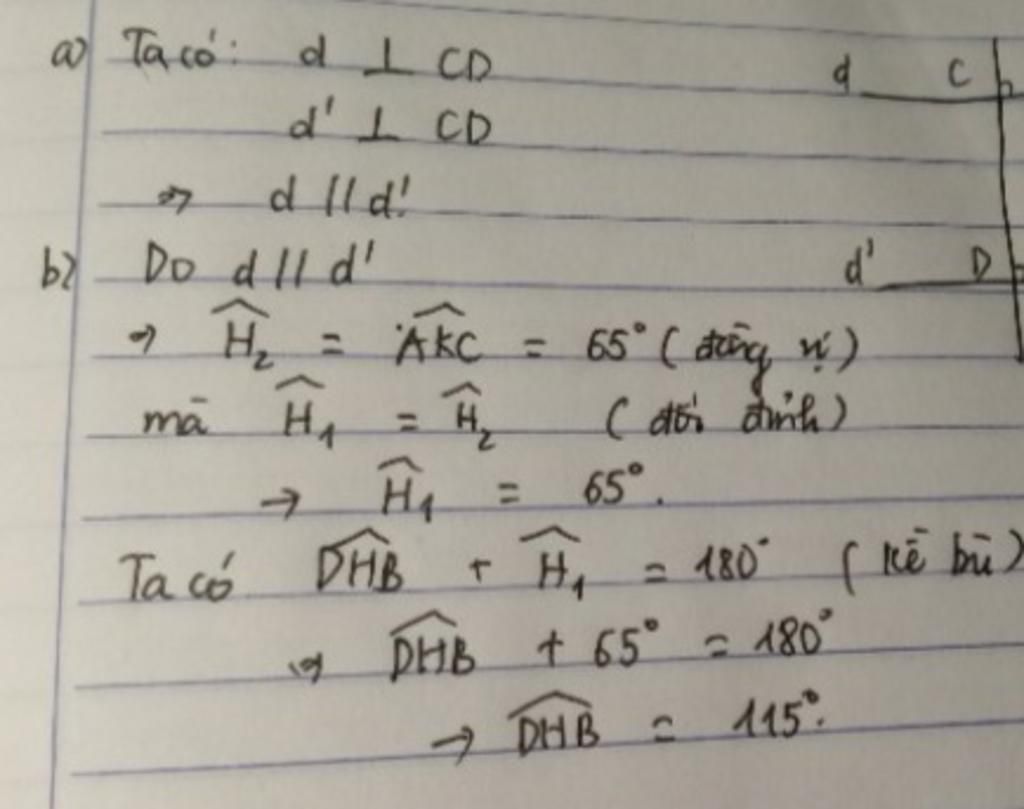 a) Ta có: d ⊥ CD
d C
d' ⊥ CD
⇒ d // d'.
b) Do d // d'
d' D
⇒ Ĥ₂ = AKC = 65° (đồng vị)
mà Ĥ₁ = Ĥ₂ (đối đỉnh)
→ Ĥ₁ = 65°.
Ta có DHB + Ĥ₁ = 180° (Kề bù)
⇒ DHB + 65° = 180°
→ DHB = 115°.